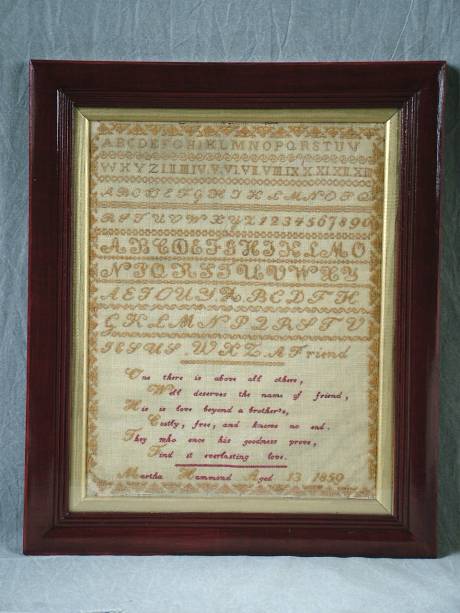 ABCDEFGHIKLMNOPQRSTUV
WXYZ I II III IV V VI VII VIII IX X XI XII XIII
ABCDEFGHIKLMNOPQ
RSTUVWXYZ1234567890
ABCDEFGHIKLMO
NPQRSTUVWXY
AEIOUYA.BCDFH
GKLMNPQRSTV
JESUS.WXZ.A Friend
One there is above all others,
Well deserves the name of friend,
His is love beyond a brother's,
Costly, free, and knows no end.
They who once his goodness prove,
Find it everlasting love.
Martha Hammond Aged 13 1859